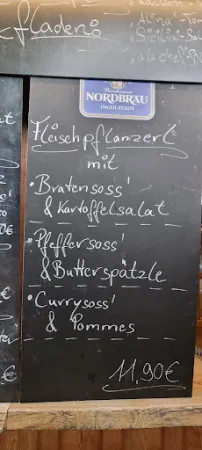 fladen
Alina
NORDBRÄU
INGOLSTADT
Fleischpflanzerl
mit
• Bratensoss'
& Kartoffelsalat
• Pfeffersoss'
& Butterspätzle
• Currysoss'
& Pommes
11,90€